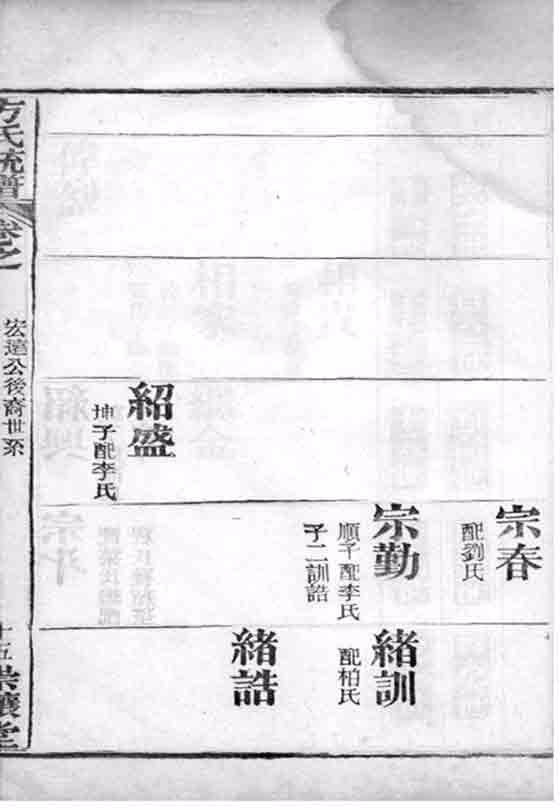 宗春
配劉氏
宗勤
順子配李氏
子二訓誥
緒訓
配柏氏
緒誥
紹盛
坤子配李氏
方氏統譜
卷之
宏達公後裔世系
十五
堂